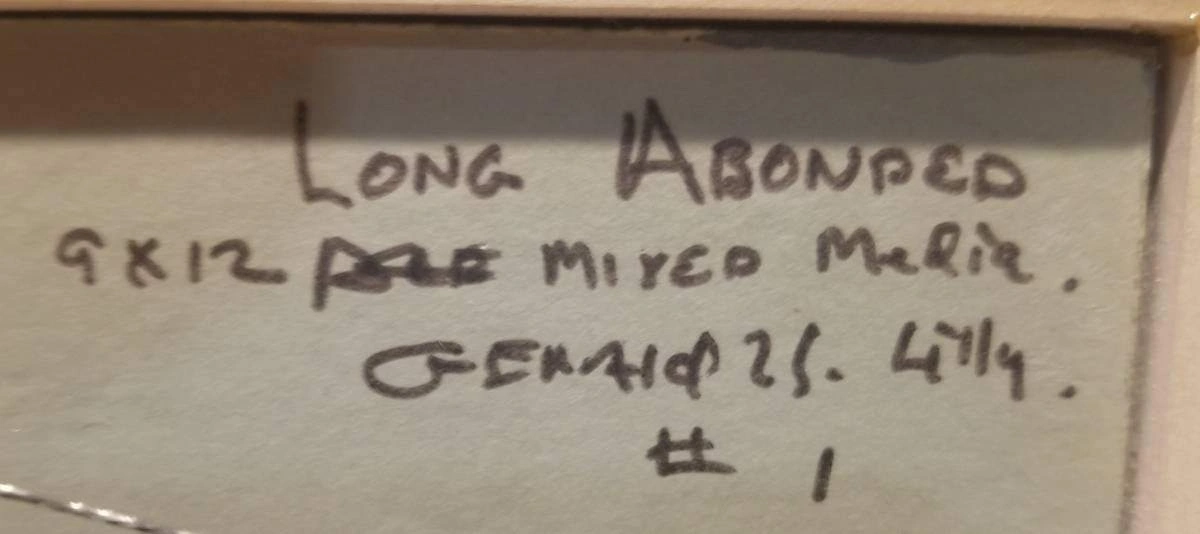 LONG ABONDED
9 X 12 MIXED Media.
GERAld J. Lilly.
# 1